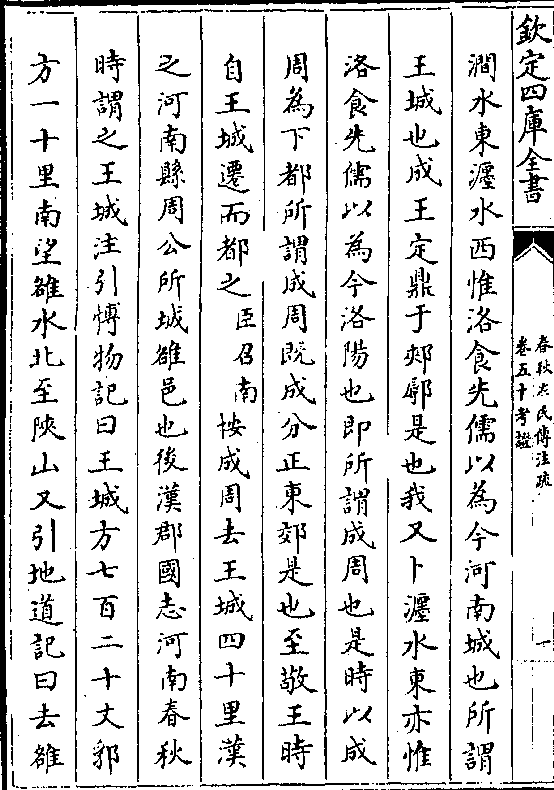 欽定四庫全書
春秋左氏傳注疏
卷五十考證
一
澗水東瀍水西惟洛食先儒以為今河南城也所謂
王城也成王定鼎于郟鄏是也我又卜瀍水東亦惟
洛食先儒以為今洛陽也即所謂成周也是時以成
周為下都所謂成周既成分正東郊是也至敬王時
自王城遷而都之臣召南按成周去王城四十里漢
之河南縣周公所城雒邑也後漢郡國志河南春秋
時謂之王城注引博物記曰王城方七百二十丈郛
方一十里南望雒水北至陜山又引地道記曰去雒